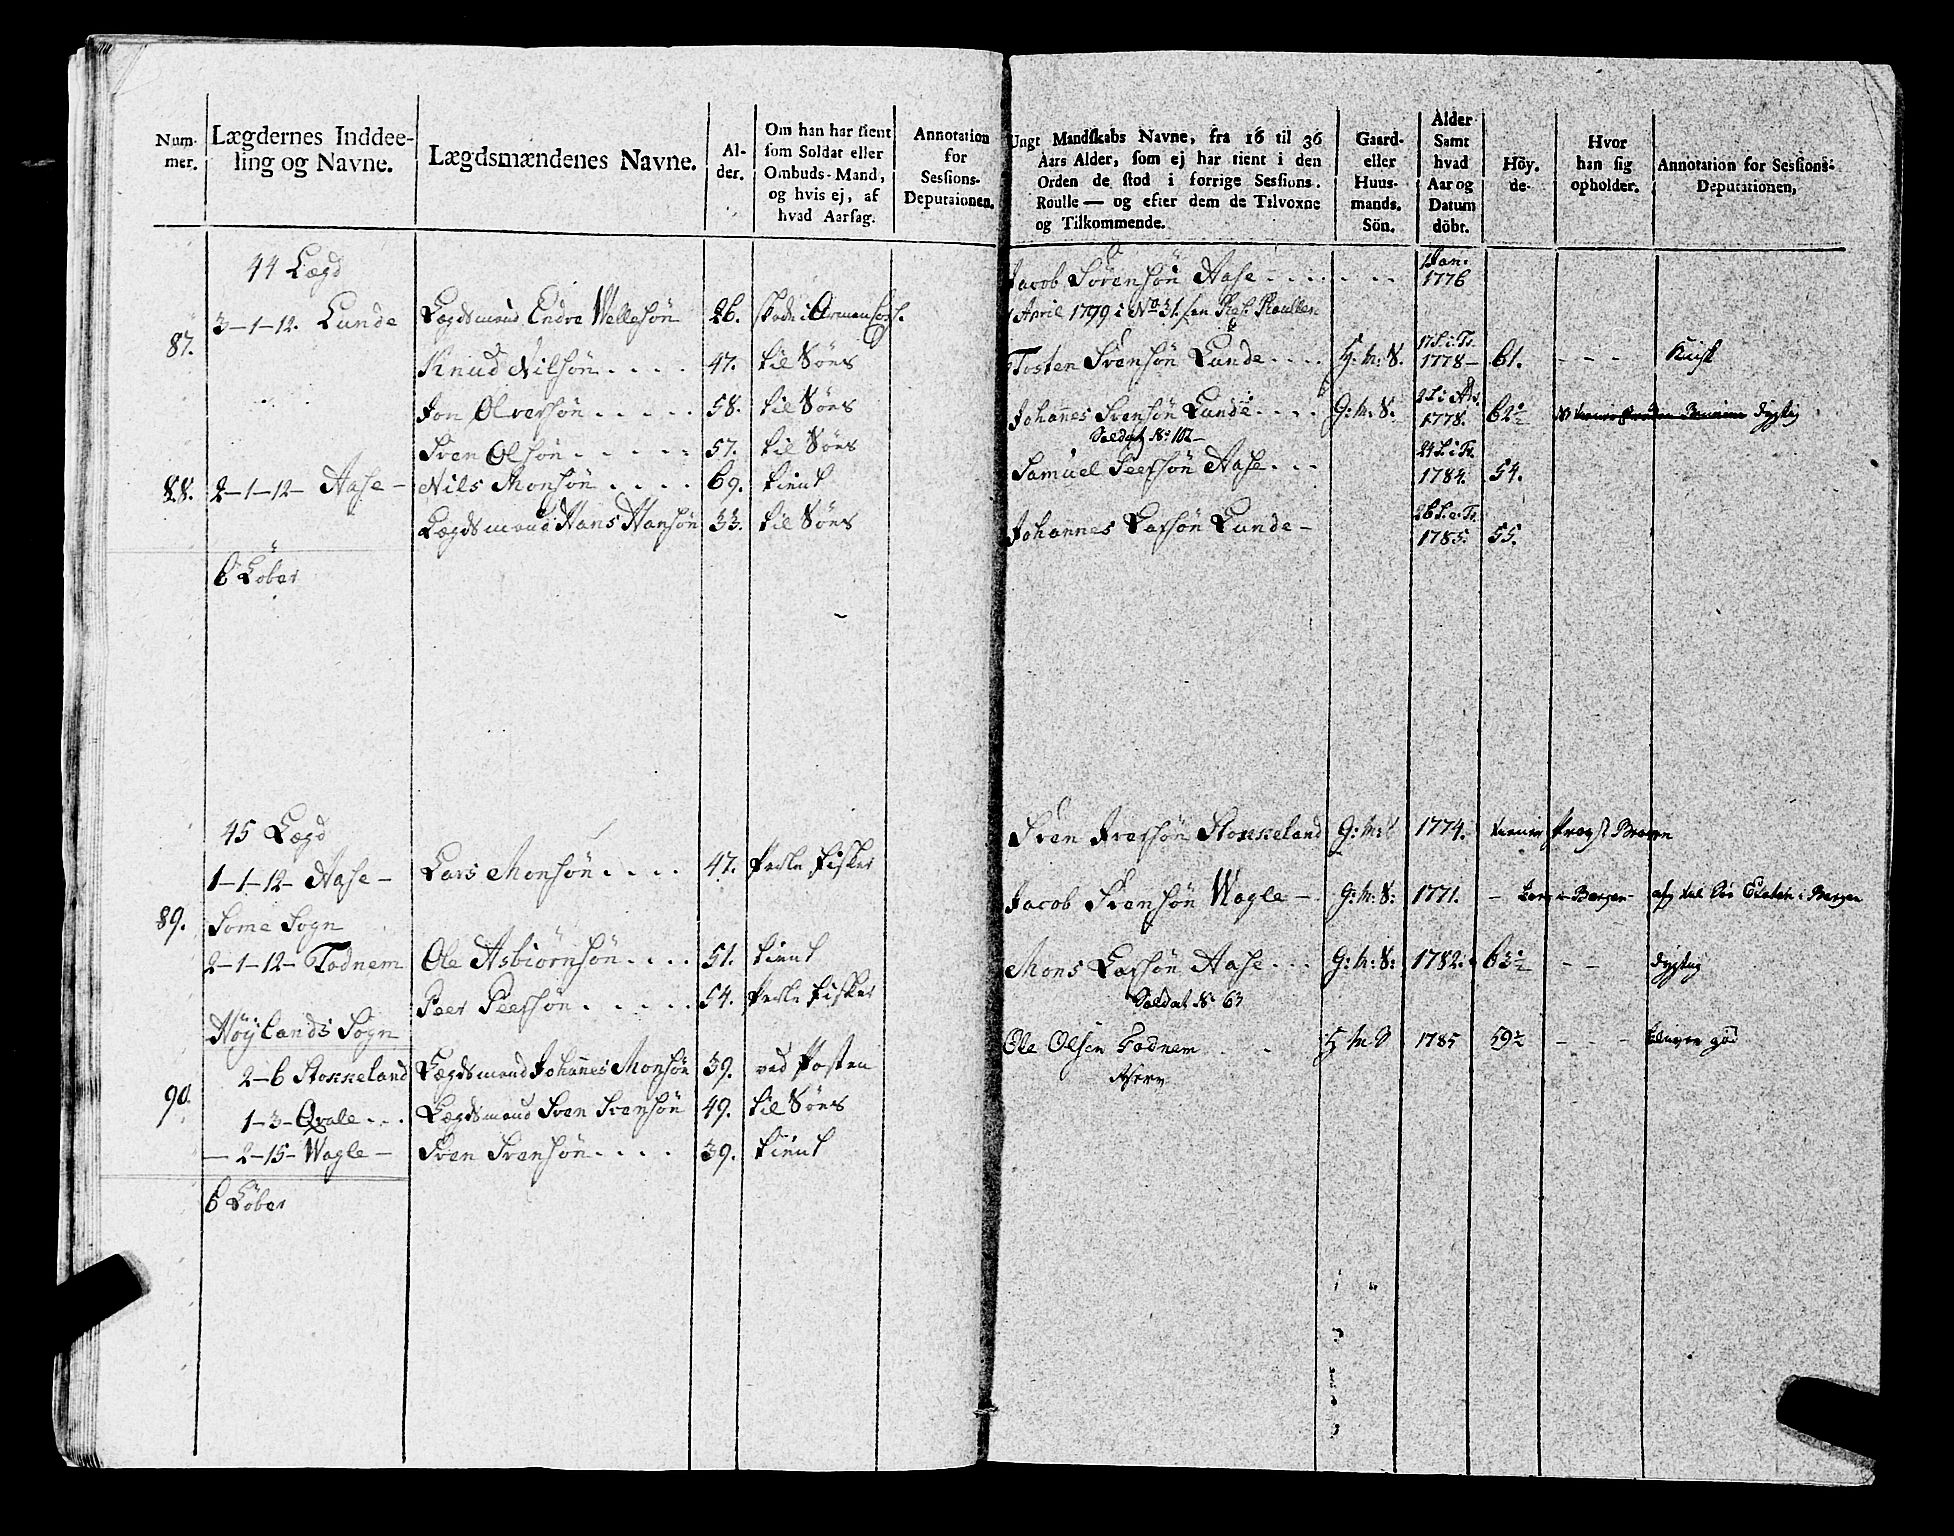 Num-
mer.
Lægdernes Inddee-
ling og Navne.
Lægdsmændenes Navne.
Al-
der.
Om han har tient
som Soldat eller
Ombuds-Mand,
og hvis ej, af
hvad Aarsag.
Annotation
for
Sessions-
Deputaionen.
44 Lægd
3-1-12. Lunde Lægdsmand Endre Wellesøn 26.
87.
Knud Nilsøn . . . . 47. til Søes
Jon Olversøn . . . . . 58. til Søes
Sven Olsøn . . . . . 57. til Søes
88. 2-1-12- Aase - Nils Monsøn . . . . 69. tient
Lægdsmand Hans Hansøn 33. til Søes
6 Løber
45 Lægd
1-1-12- Aase - Lars Monsøn . . . . 47. Perle fisker
89. Some Sogn
2-1-12- Fodnem Ole Asbiørnsøn . . . . 51. tient
Peer Peersøn . . . . . 54. Perle fisker
Høylands Sogn
2-6 Stokkeland Lægdsmand Johanes Monsøn 39. ved Posten
90.
1-3- Qvale . . . Lægdsmand Sven Svensøn 49. til Søes
- 2-15- Wagle - Sven Svensøn . . . . 39. tient
6 Løber
Ungt Mandskabs Navne, fra 16 til 36
Aars Alder, som ej har tient i den
Orden de stod i forrige Sessions.
Roulle — og efter dem de Tilvoxne
og Tilkommende.
Gaard-
eller
Huus-
mands.
Sön.
Alder
Samt
hvad
Aar og
Datum
döbt.
Höy.
de-
Hvor
han sig
opholder.
Annotation for Sessions-
Deputationen,
Jacob Sørensøn Aase - . . . - - - Jan: 1776
April 1799 i No 31.
Tosten Svensøn Lunde . . . . H: M: S. 1778- 61. - - -
Johanes Svensøn Lunde . . . . G: M: S. 1778. 62½ dygtig
Soldat No 102-
Samuel Peersøn Aase . . . 1784. 54.
Johannes Larsøn Lunde - 1785. 55.
Sven Iversøn Stokkeland G: M: S 1774.
Jacob Svensøn Wagle - G: M: S: 1771. - i Bergen -
Mons Larsøn Aase . . . G: M: S: 1782. 63½ - - dygtig
Soldat No 63
Ole Olsen Fodnem . . H M S 1785 59½ - - -